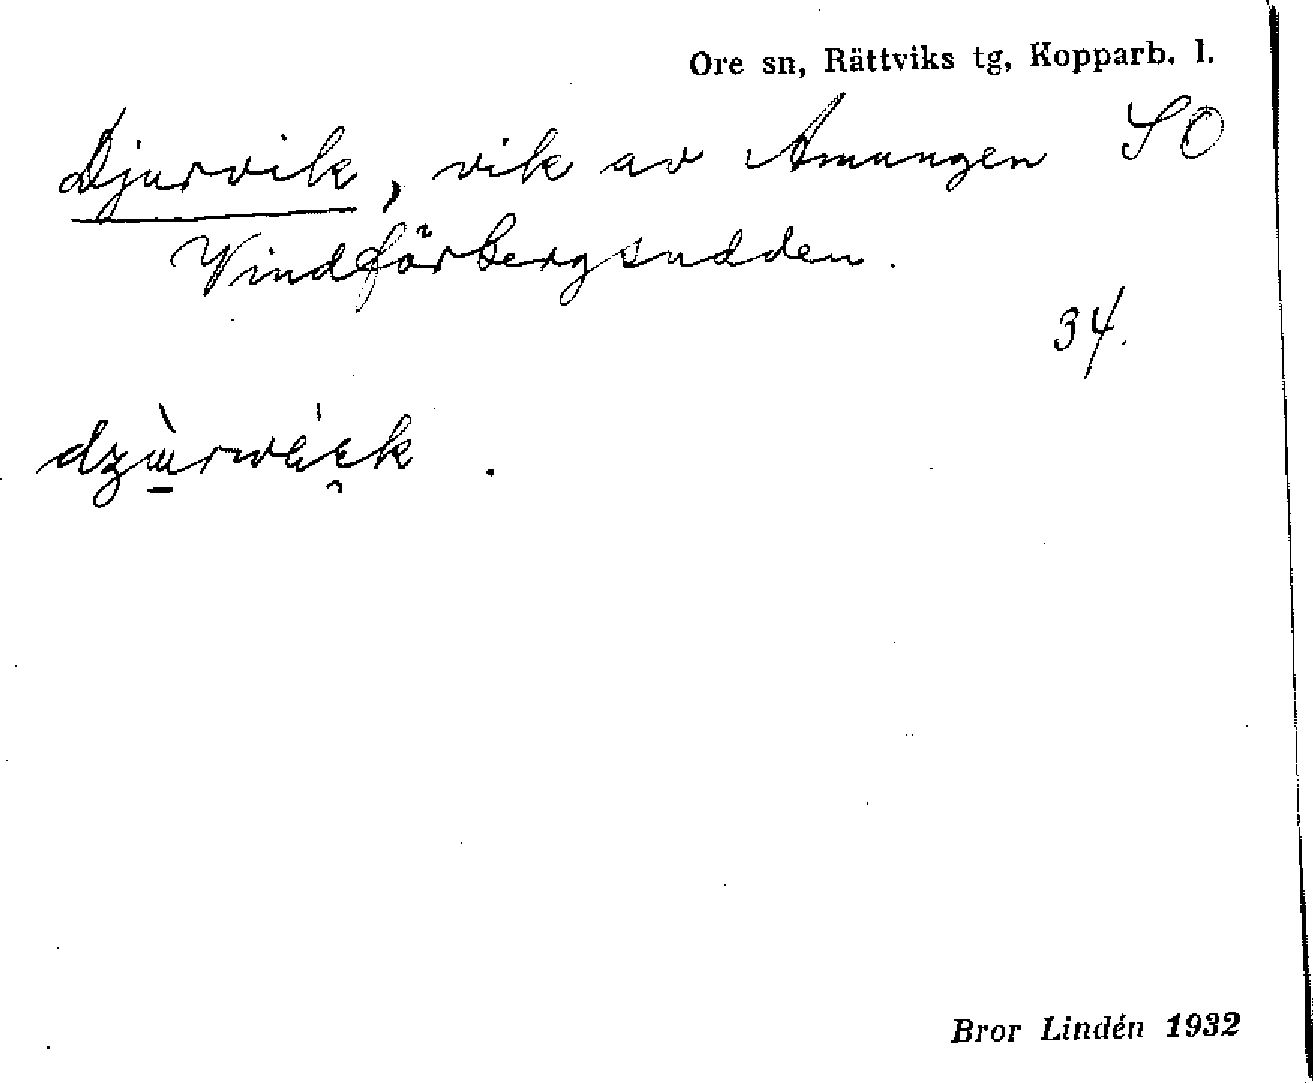 Ore sn, Rättviks tg, Kopparb. l.
Djurvik, vik av Amungen SO
Vindförbergsudden.
34.
Bror Lindén 1932